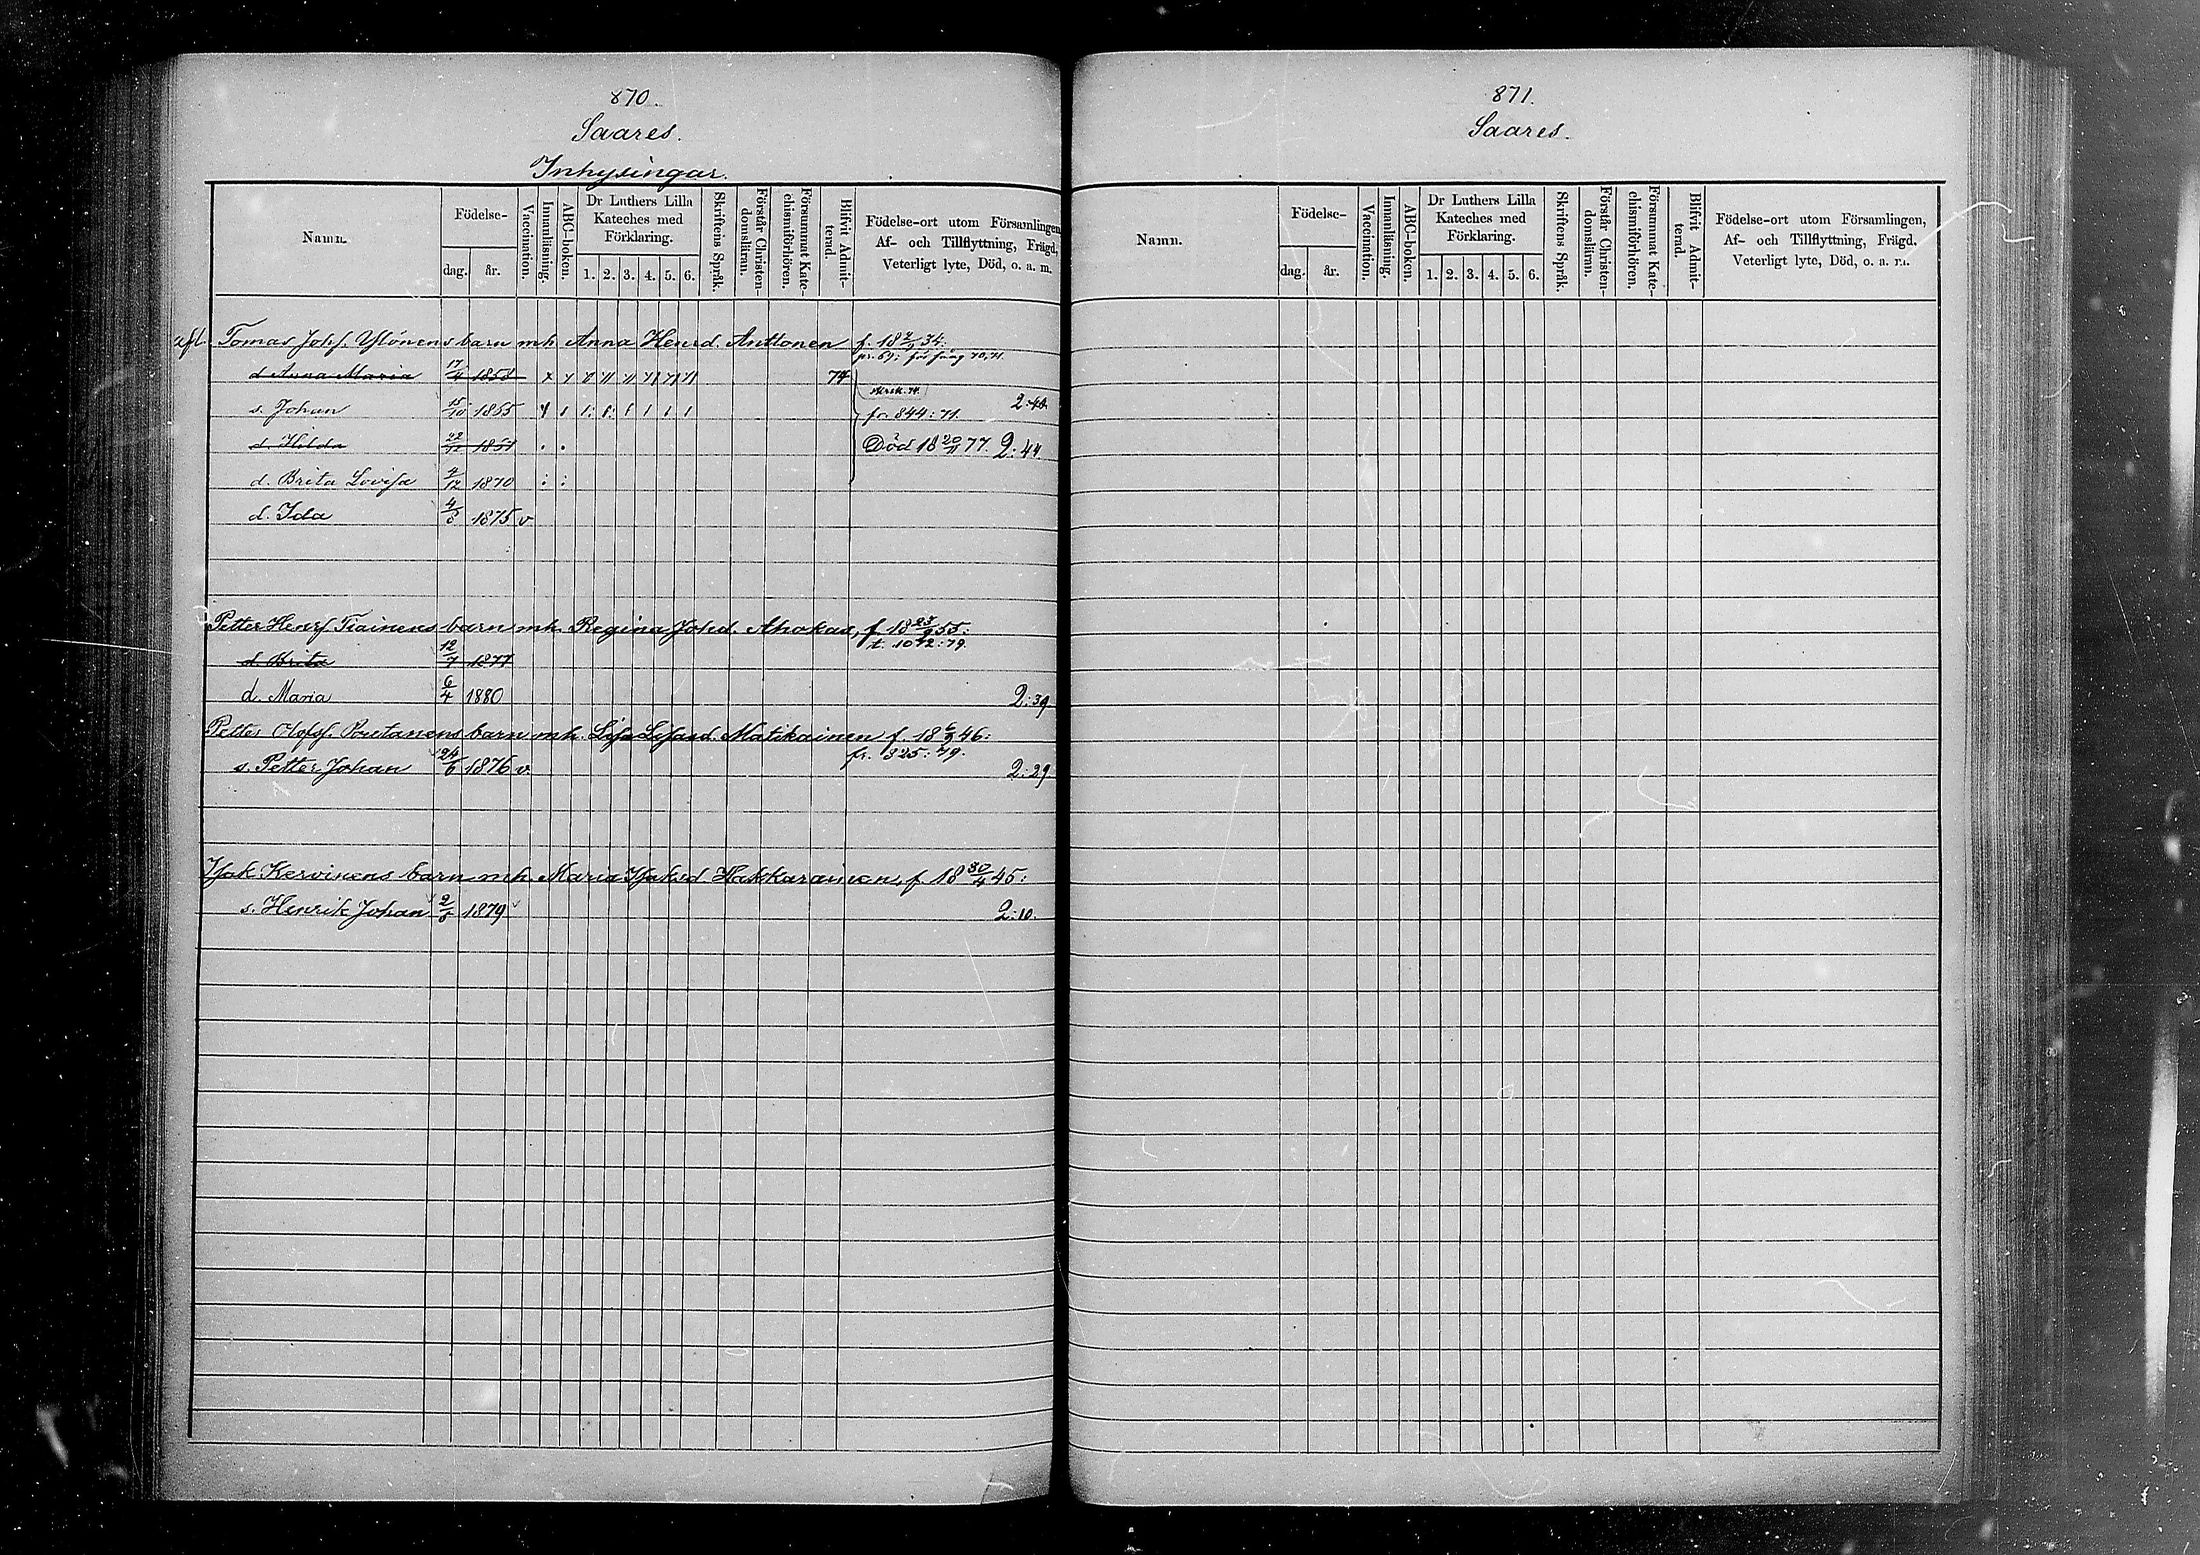 870.
Saares.
Inhysingar.
Namn.
Födelse-
dag.
år.
Vaccination.
Innanläsning.
ABC-boken.
Dr Luthers Lilla
Kateches med
Förklaring.
1. 2. 3. 4. 5. 6.
Skriftens Språk.
Förstår Christen-
domsläran.
Försummat Kate-
chismiförhören.
Blifvit Admit-
terad.
Födelse-ort utom Församlingen,
Af- och Tillflyttning, Frägd,
Veterligt lyte, Död, o. a. m.
Tomas Johs. Ylönens barn mh Anna Henrd. Anttonen f. 18 34.
d Anna Maria 17/4 1858 74
s. Johan 15/10 1865 fr. 844:71. 2:40
d. Hilda Död 18 20/11 77. 2:44.
d. Brita Lovisa 4/12 1870
d. Ida 1875 v
Petter Henrs. Tiainens barn mh. Regina Johd. Ahokas, f. 18 55:
t. 1072:79.
d. Brita 12/7 1877
d. Maria 6/4 1880 2:39
Petter Olofs. Poutanens barn mh. Lisa Matikainen f. 18 6/9 46:
fr. 825:79.
s. Petter Johan 24/6 1876 v. 2:29
Isak Kervinens barn mh. Maria Isaksd Hakkarainen, f. 18 30/4 45:
s. Henrik Johan 1879 2:10.
871.
Saares.
Namn.
Födelse-
dag.
år.
Vaccination.
Innanläsning.
ABC-boken.
Dr Luthers Lilla
Kateches med
Förklaring.
1. 2. 3. 4. 5. 6.
Skriftens Språk.
Förstår Christen-
domsläran.
Försummat Kate-
chismiförhören.
Blifvit Admit-
terad.
Födelse-ort utom Församlingen,
Af- och Tillflyttning, Frägd.
Veterligt lyte, Död, o. a. m.